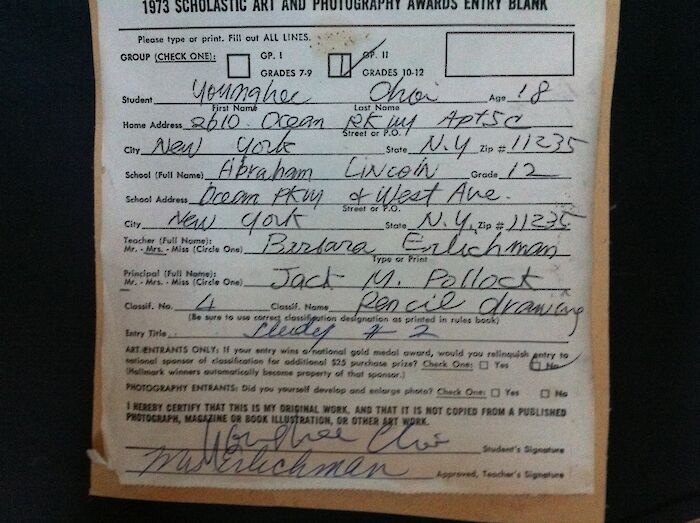 1973 SCHOLASTIC ART AND PHOTOGRAPHY AWARDS ENTRY BLANK
Please type or print. Fill out ALL LINES.
GROUP (CHECK ONE): GP. I GP. II
GRADES 7-9 GRADES 10-12
Student Younghee Choi Age 18
First Name Last Name
Home Address 2610 Ocean PKWY Apt5C
Street or P.O.
City New York State N.Y Zip # 11235
School (Full Name) Abraham Lincoln Grade 12
School Address Ocean PKWY & West Ave.
Street or P.O.
City New York State N.Y. Zip # 11235
Teacher (Full Name): Barbara Erlichman
Mr. - Mrs. - Miss (Circle One) Type or Print
Principal (Full Name): Jack M. Pollock
Mr. - Mrs. - Miss (Circle One)
Classif. No. 4 Classif. Name Pencil drawing
(Be sure to use correct classification designation as printed in rules book)
Entry Title Study # 2
ART ENTRANTS ONLY: If your entry wins a national gold medal award, would you relinquish entry to
national sponsor of classification for additional $25 purchase prize? Check One: Yes No
(Hallmark winners automatically become property of that sponsor.)
PHOTOGRAPHY ENTRANTS: Did you yourself develop and enlarge photo? Check One: Yes No
I HEREBY CERTIFY THAT THIS IS MY ORIGINAL WORK, AND THAT IT IS NOT COPIED FROM A PUBLISHED
PHOTOGRAPH, MAGAZINE OR BOOK ILLUSTRATION, OR OTHER ART WORK.
Younghee Choi Student's Signature
Mrs Erlichman Approved, Teacher's Signature